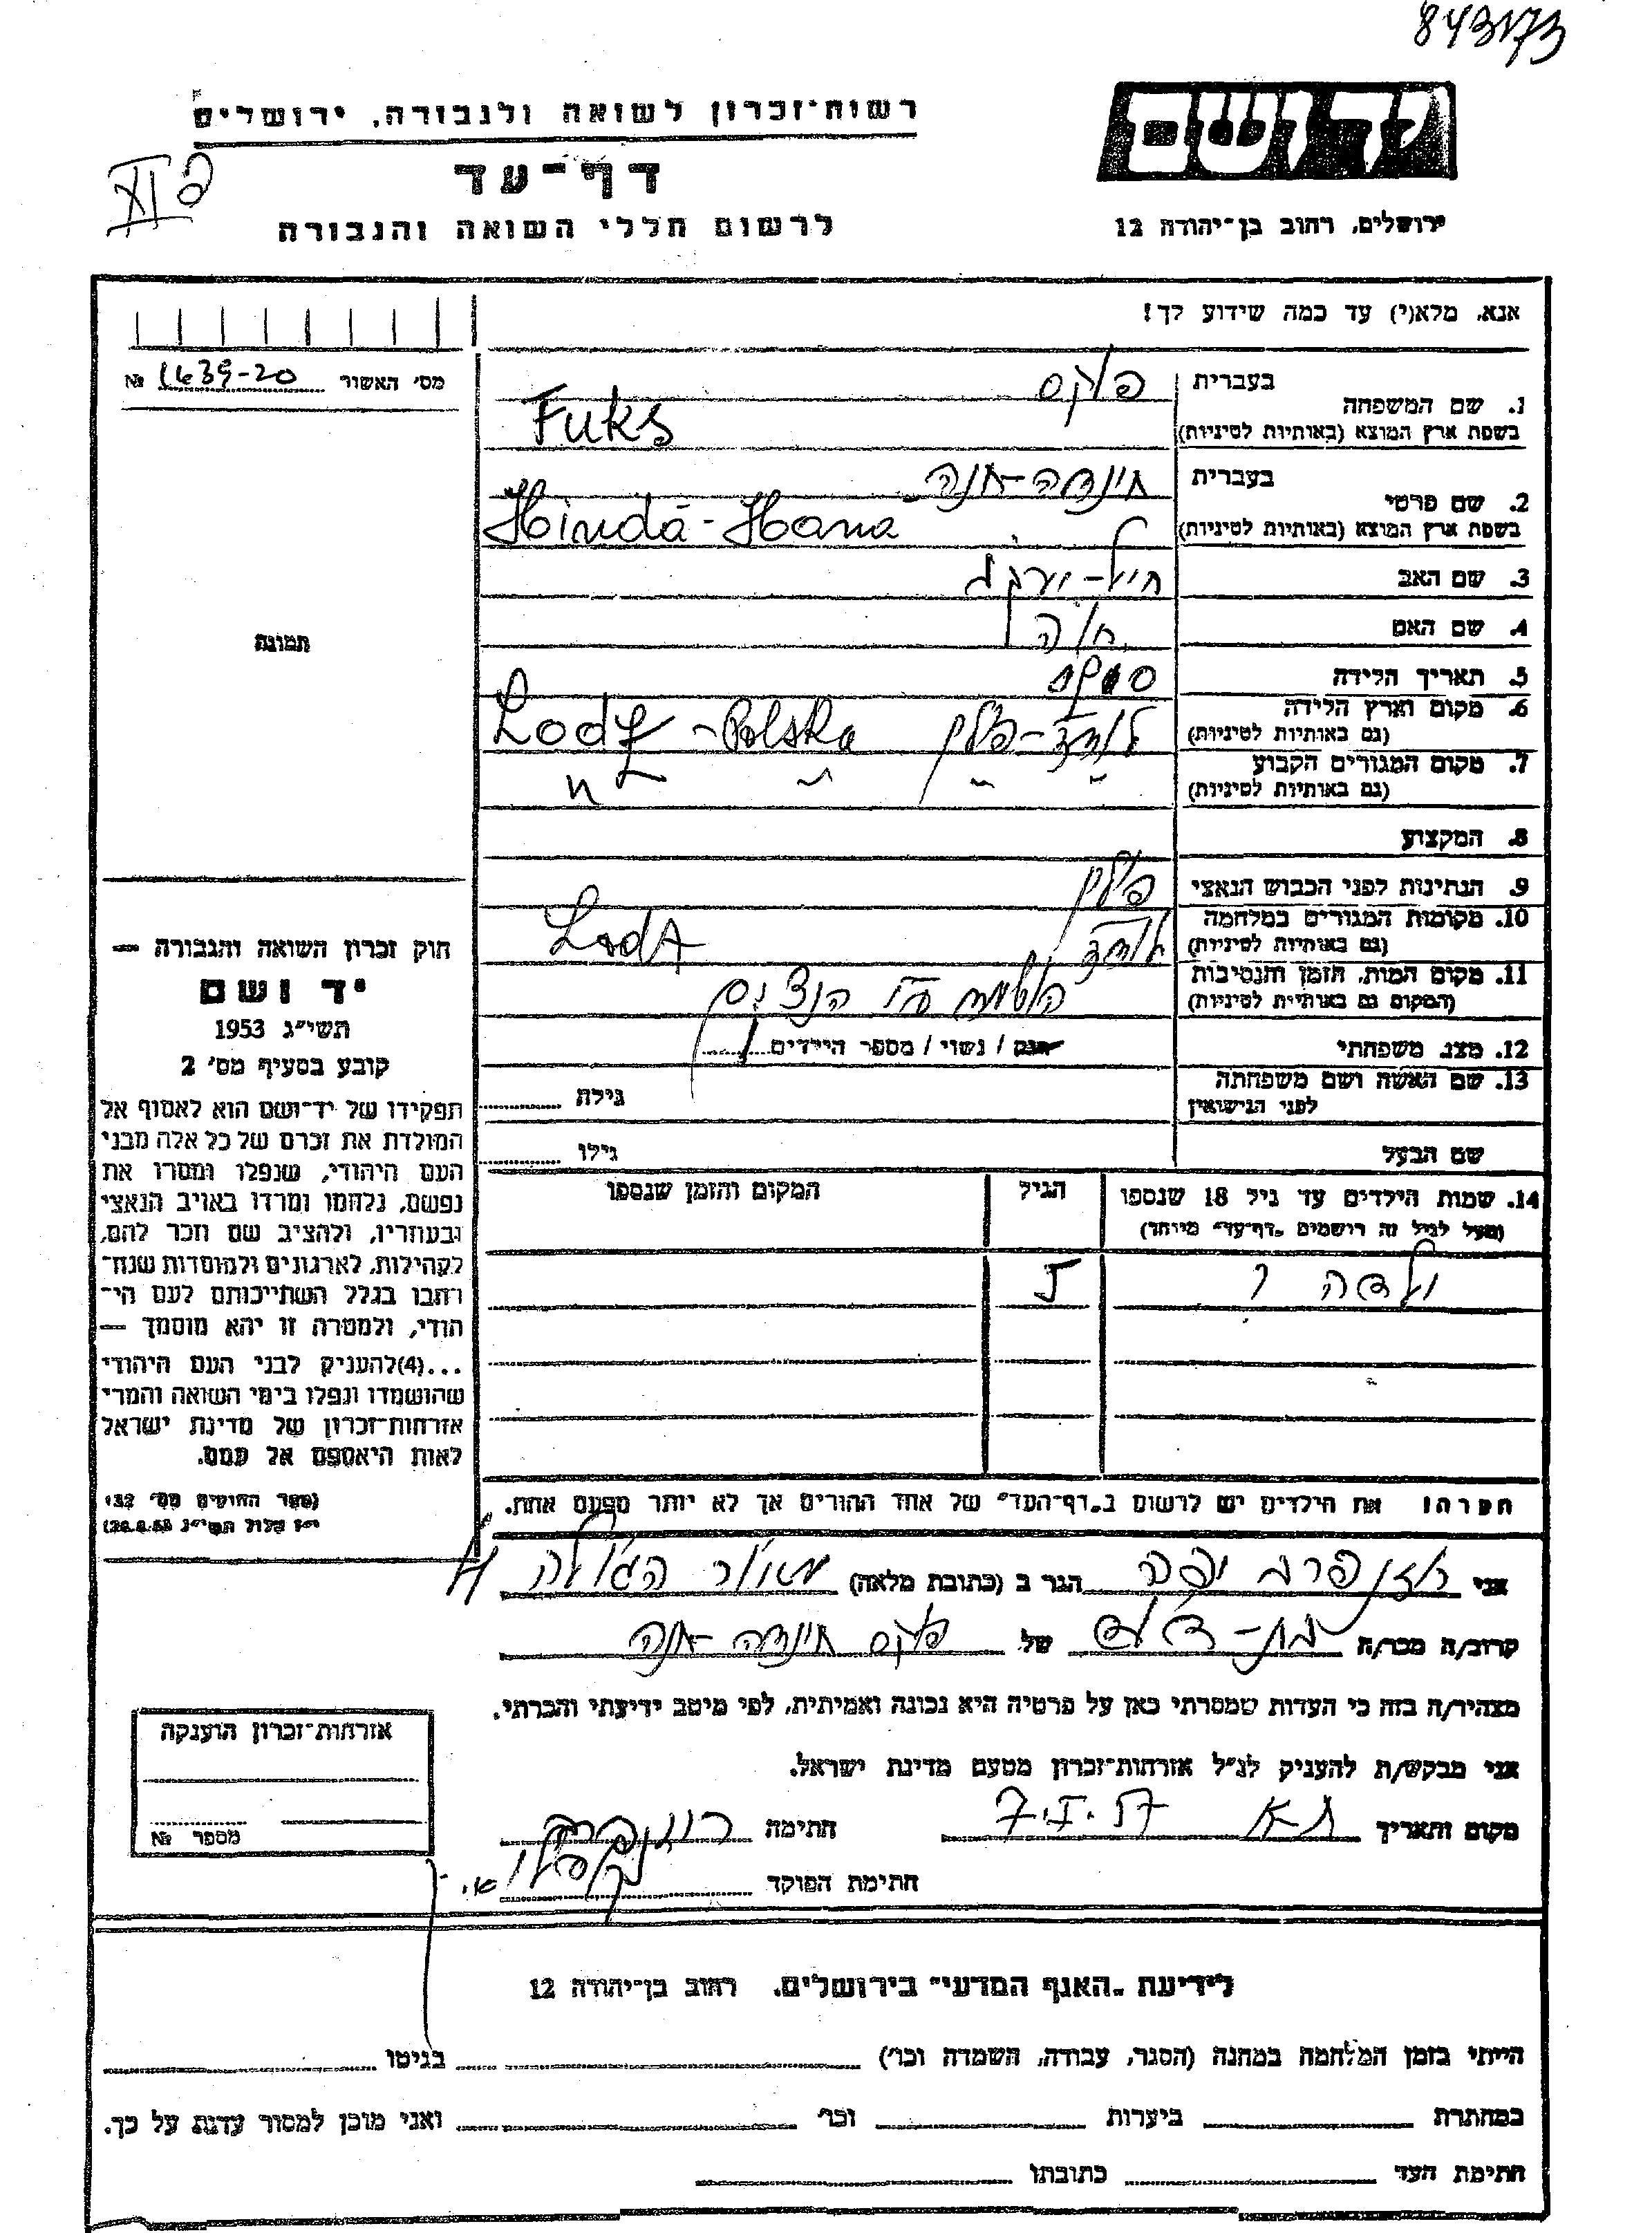 843173
רשות-זכרון לשואה ולגבורה, ירושלים
יד ושם
דף-עד
לרשום חללי השואה והגבורה
ירושלים, רחוב בן-יהודה 12
אנא, מלא(י) עד כמה שידוע לך!
מס' האשור 1639-20 №
תמונה
1. שם המשפחה בעברית פוקס
בשפת ארץ המוצא (באותיות לטיניות) Fuks
2. שם פרטי בעברית הינדה-חנה
בשפת ארץ המוצא (באותיות לטיניות) Hinda-Hana
3. שם האב
4. שם האם חוה
5. תאריך הלידה
6. מקום וארץ הלידה (גם באותיות לטיניות) לודז-פולין Lodz-Polska
7. מקום המגורים הקבוע (גם באותיות לטיניות) " " " "
8. המקצוע
9. הנתינות לפני הכבוש הנאצי פולין
10. מקומות המגורים במלחמה (גם באותיות לטיניות) לודז Lodz
11. מקום המות, הזמן והנסיבות (המקום גם באותיות לטיניות) הושמד ע"י הנצים
12. מצב משפחתי רווק / נשוי / מספר הילדים 1
13. שם האשה ושם משפחתה לפני הנישואין גילה
שם הבעל גילו
14. שמות הילדים עד גיל 18 שנספו הגיל המקום והזמן שנספו
(מעל לגיל זה רושמים "דף-עד" מיוחד)
ילדה 1 5
הערה! את הילדים יש לרשום ב"דף-העד" של אחד ההורים אך לא יותר מפעם אחת.
חוק זכרון השואה והגבורה —
יד ושם
תשי"ג 1953
קובע בסעיף מס' 2
תפקידו של יד-ושם הוא לאסוף אל
המולדת את זכרם של כל אלה מבני
העם היהודי, שנפלו ומסרו את
נפשם, נלחמו ומרדו באויב הנאצי
ובעוזריו, ולהציב שם וזכר להם,
לקהילות, לארגונים ולמוסדות שנח-
רבו בגלל השתייכותם לעם הי-
הודי, ולמטרה זו יהא מוסמך —
...(4)להעניק לבני העם היהודי
שהושמדו ונפלו בימי השואה והמרי
אזרחות-זכרון של מדינת ישראל
לאות היאספם אל עמם.
(ספר החוקים מס' 132
י"ז אלול תשי"ג 28.8.53)
אני רוזנפרב יפה הגר ב (כתובת מלאה) מאור הגולה
קרוב/ה מכר/ה בת-דוד של פוקס הינדה-חנה
מצהיר/ה בזה כי העדות שמסרתי כאן על פרטיה היא נכונה ואמיתית, לפי מיטב ידיעתי והכרתי.
אני מבקש/ת להעניק לנ"ל אזרחות-זכרון מטעם מדינת ישראל.
מקום ותאריך ת"א 7.I.57 חתימה
חתימת הפוקד
אזרחות-זכרון הוענקה
מספר №
לידיעת "האגף המדעי" בירושלים, רחוב בן-יהודה 12
הייתי בזמן המלחמה במחנה (הסגר, עבודה, השמדה וכו') בגיטו
במחתרת ביערות וכו' ואני מוכן למסור עדות על כך.
חתימת העד כתובתו